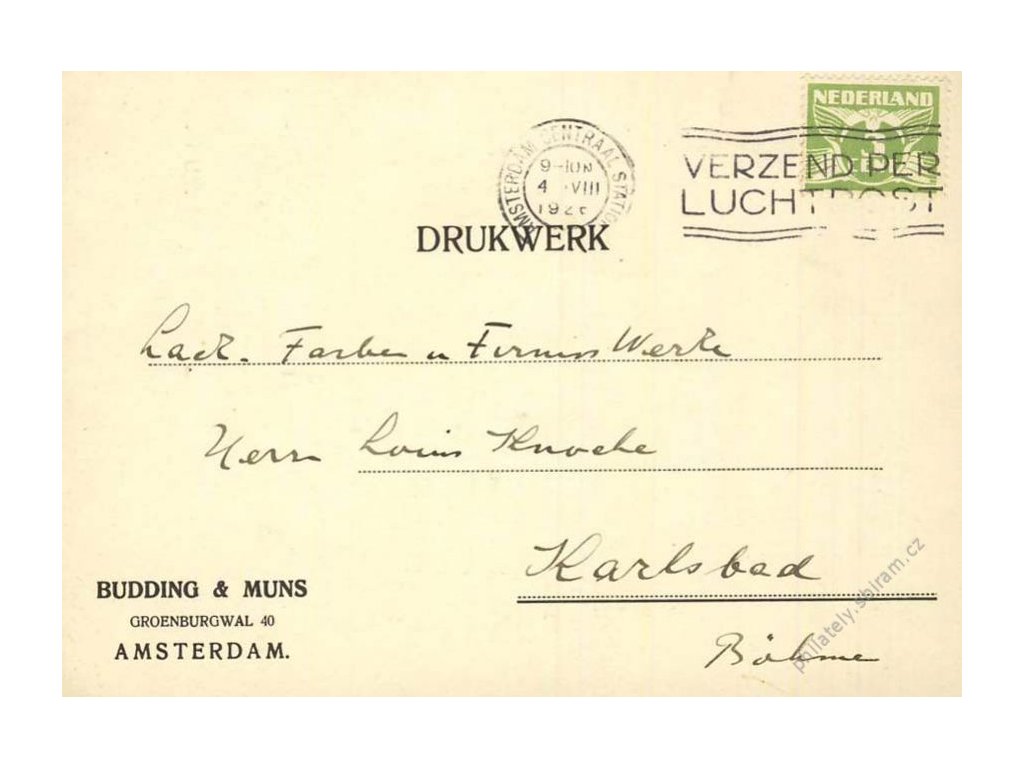 NEDERLAND
AMSTERDAM CENTRAAL STATION
4 VIII
VERZEND PER
LUCHTPOST
DRUKWERK
Lack. Farben u Firniss Werke
Herrn Louis Knoche
Karlsbad
Böhmen
BUDDING & MUNS
GROENBURGWAL 40
AMSTERDAM.
philately.sbiram.cz